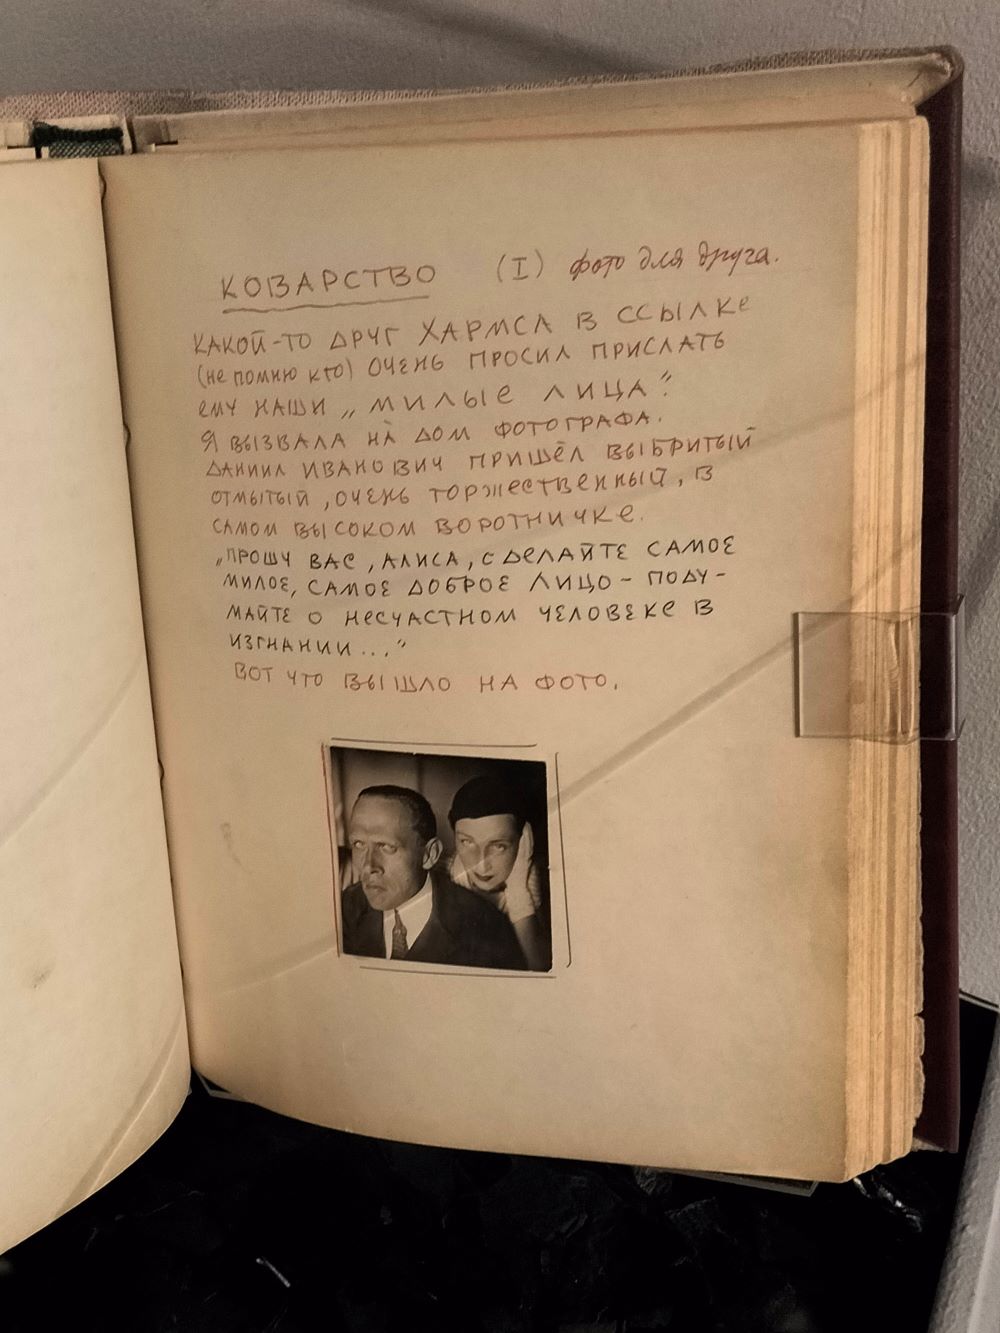 КОВАРСТВО (I) фото для друга.
КАКОЙ-ТО ДРУГ ХАРМСА В ССЫЛКЕ
(не помню кто) ОЧЕНЬ ПРОСИЛ ПРИСЛАТЬ
ЕМУ НАШИ „МИЛЫЕ ЛИЦА".
Я ВЫЗВАЛА НА ДОМ ФОТОГРАФА.
ДАНИИЛ ИВАНОВИЧ ПРИШЁЛ ВЫБРИТЫЙ
ОТМЫТЫЙ, ОЧЕНЬ ТОРЖЕСТВЕННЫЙ, В
САМОМ ВЫСОКОМ ВОРОТНИЧКЕ.
„ПРОШУ ВАС, АЛИСА, СДЕЛАЙТЕ САМОЕ
МИЛОЕ, САМОЕ ДОБРОЕ ЛИЦО – ПОДУ-
МАЙТЕ О НЕСЧАСТНОМ ЧЕЛОВЕКЕ В
ИЗГНАНИИ..."
ВОТ ЧТО ВЫШЛО НА ФОТО.